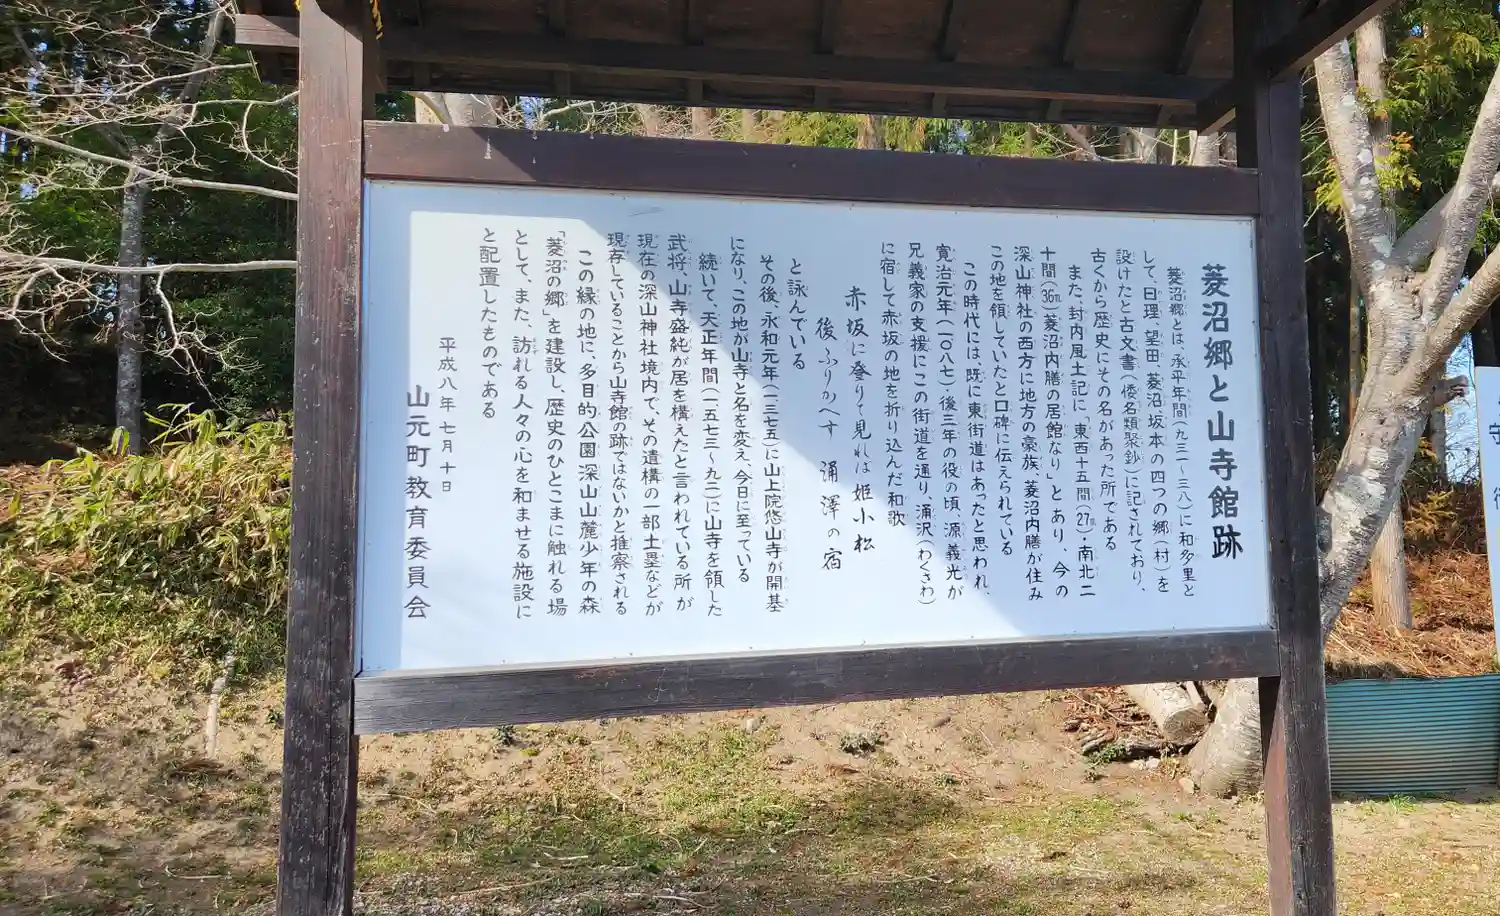 菱沼郷と山寺館跡
菱沼郷とは、承平年間(九三一~三八)に和多里と
して、日理、望田、菱沼、坂本の四つの郷(村)を
設けたと古文書、倭名類聚鈔)に記されており、
古くから歴史にその名があった所である
また、封内風土記に「東西十五間(27m)・南北二
十間(36m)菱沼内膳の居館なり」とあり、今の
深山神社の西方に地方の豪族、菱沼内膳が住み
この地を領していたと口碑に伝えられている
この時代には、既に東街道はあったと思われ、
寛治元年(一〇八七)後三年の役の頃、源義光が
兄義家の支援にこの街道を通り、涌沢(わくさわ)
に宿して赤坂の地を折り込んだ和歌
赤坂に登りて見れは姫小松
後ふりかへす 涌澤の宿
と詠んでいる
その後、永和元年(一三七五)に山上院悠山寺が開基
になり、この地が山寺と名を変え、今日に至っている
続いて、天正年間(一五七三~九二)に山寺を領した
武将、山寺盛純が居を構えたと言われている所が
現在の深山神社境内で、その遺構の一部土塁などが
現存していることから山寺館の跡ではないかと推察される
この縁の地に、多目的公園深山山麓少年の森
「菱沼の郷」を建設し、歴史のひとこまに触れる場
として、また、訪れる人々の心を和ませる施設に
と配置したものである
平成八年七月十日
山元町教育委員会
守